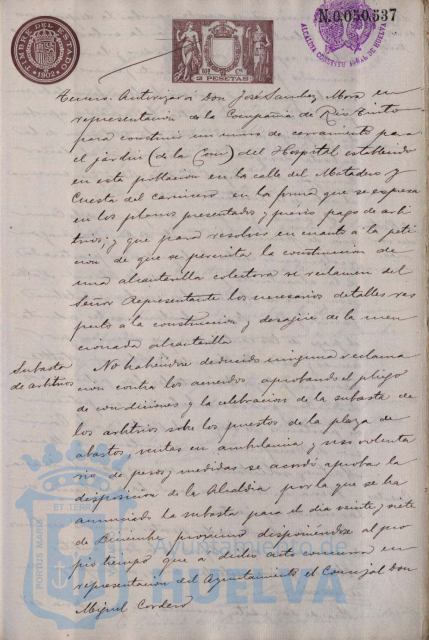 TIMBRE DEL ESTADO
1902
2 PESETAS
N.0.050.537
ALCALDIA CONSTITUCIONAL DE HUELVA
tercero. Autorizar á Don José Sanchez Mora en
representación de la Compañia de Rio Tinto
para construir un muro de cerramiento para
el jardin (de la Casa) del Hospital establecido
en esta poblacion en la calle del Matadero y
Cuesta del carnicero en la forma que se expresa
en los planos presentados y previo pago de arbi
trios; y que para resolver en cuanto a la peti
ción de que se permita la construccion de
una alcantarilla colectora se reclamen del
Señor Representante los necesarios detalles res
pecto á la construccion y desagüe de la men
cionada alcantarilla
Subasta
de arbitrios
No habiendose deducido ninguna reclama
cion contra los acuerdos aprobando el pliego
de condiciones y la celebracion de la subasta de
los arbitrios sobre los puestos de la plaza de
abastos, ventas en ambulancia y uso volunta
rio de pesos y medidas se acordó aprobar la
disposicion de la Alcaldia por la que se ha
anunciado la subasta para el dia veinte y siete
de Diciembre proximo disponiendose al pro
pio tiempo que a dicho acto concurra en
representacion del Ayuntamiento el Concejal Don
Miguel Cordero
ET TERR
PORTUS MARIS
Ayuntamiento de
HUELVA